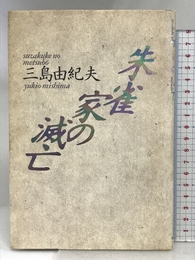 suzakuke no
metsubō
三島由紀夫
yukio mishima
朱雀
家の
滅亡